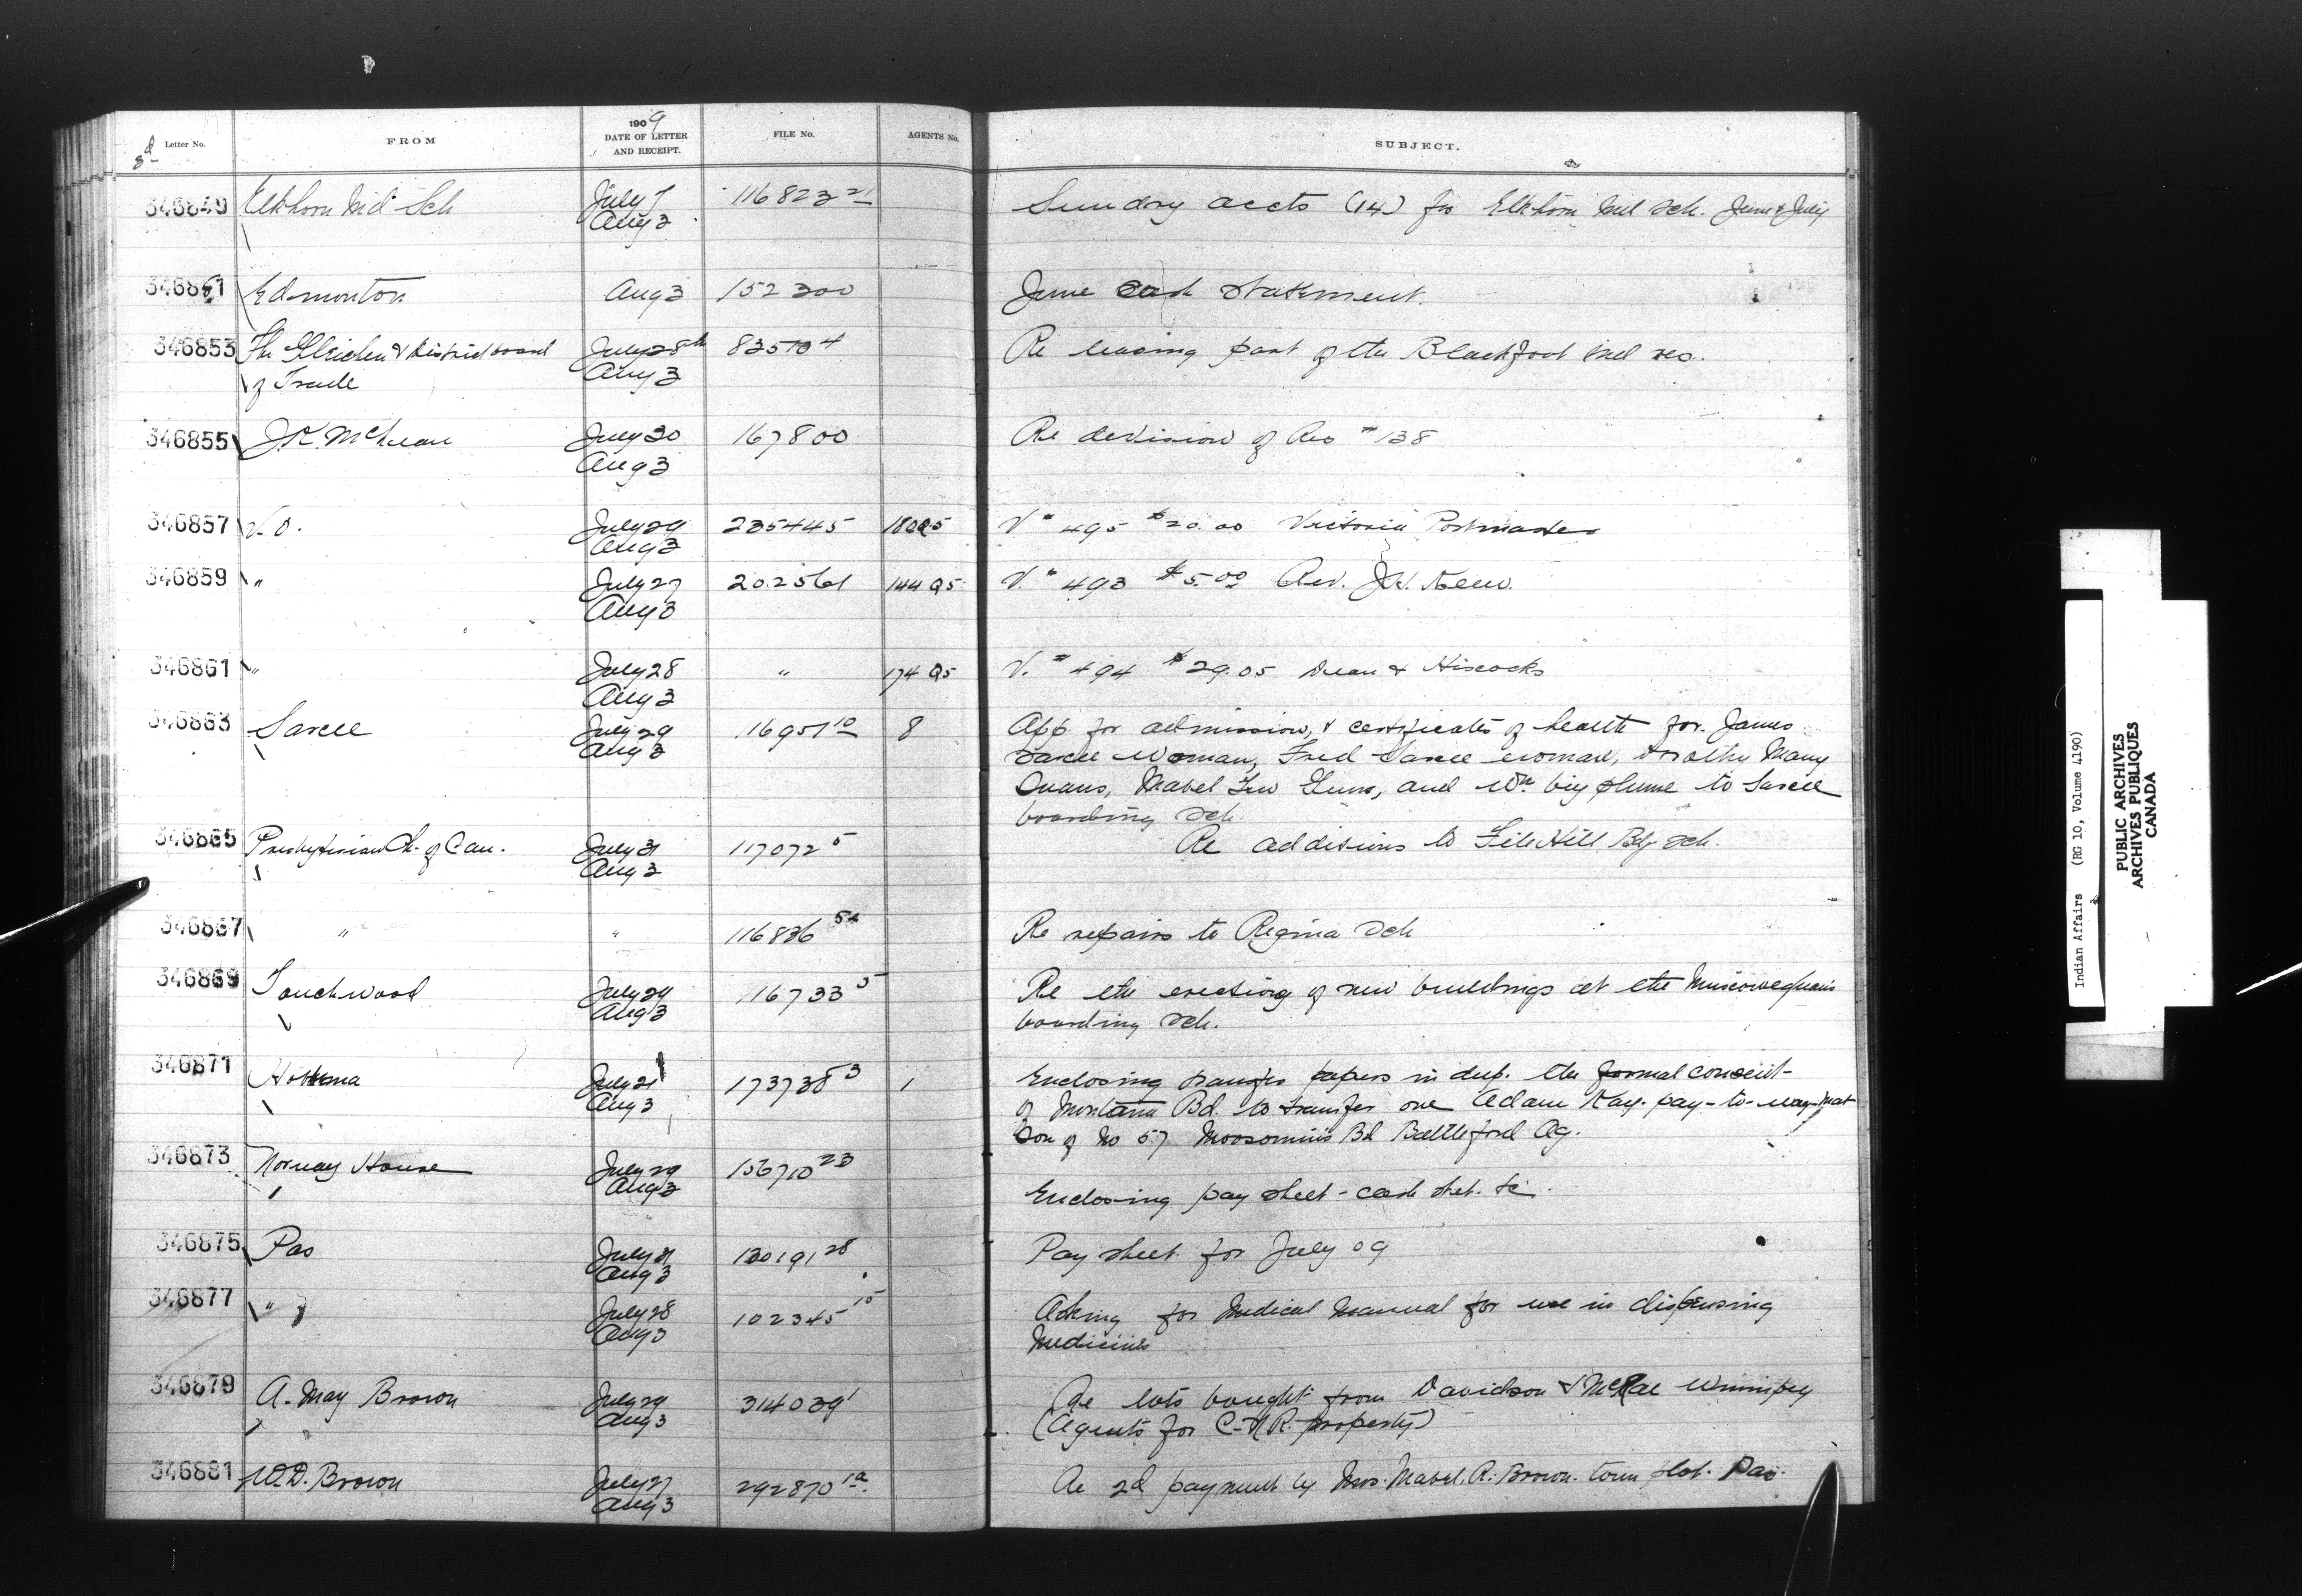 8d
Letter No. FROM 1909 DATE OF LETTER AND RECEIPT. FILE No. AGENTS No. SUBJECT.
346849 Elkhorn Ind Sch July 7 116823 21 Sundry accts (14) for Elkhorn Ind Sch. June & July
Aug 3
346851 Edmonton Aug 3 152300 June cash statement.
346853 The Gleichen & District board July 28th 83510 4 Re leasing part of the Blackfoot Ind res.
of Trade Aug 3
346855 J.K. McLean July 30 167800 Re devision of Res # 138
Aug 3
346857 V.O. July 29 235445 V # 495 $20.00 Victoria Postmaster
Aug 3
346859 " July 27 202561 144 Q5 V. # 493 $5.00 Rev.
Aug 3
346861 " July 28 " 174 Q5 V. # 494 $29.05 Dean & Hiscocks
Aug 3
346863 Sarcee July 29 116951 10 8 App. for admission, & certificates of health for James
Aug 3 Sarcee Woman, Fred Sarcee woman, Dorothy Many
Guns, Mabel Two Guns, and Wm big plume to Sarcee
boarding Sch.
346865 Presbyterian Ch. of Can. July 31 117072 5 Re additions to File Hill Bdg Sch.
Aug 3
346867 " " 116836 54 Re repairs to Regina Sch
346869 Touchwood July 29 116733 5 Re the erecting of new buildings at the Muscowequans
Aug 3 boarding Sch.
346871 Hobbema July 21 173738 3 1 Enclosing transfer papers in dup. the formal consent
Aug 3 of Montana Bd. to transfer one Adam Kay-pay-to-way-mat
Son of No 57 Moosomin's Bd Battleford Ag.
346873 Norway House July 29 156710 23
Aug 3 Enclosing pay sheet - cash stat. &c.
346875 Pas July 31 130191 28 Pay sheet for July 09
Aug 3
346877 " July 28 102345 15 Asking for Medical Manual for use in dispensing
Aug 3 Medicines
346879 A. May Brown July 29 314039 1 Re lots bought from Davidson & McRae Winnipeg
Aug 3 (Agents for C.N.R. property)
346881 W.D. Brown July 27 292870 1a Re 2d payment by Mrs. Mabel. R. Brown. town plot. Pas.
Aug 3
Indian Affairs (RG 10, Volume 4190)
PUBLIC ARCHIVES
ARCHIVES PUBLIQUES
CANADA